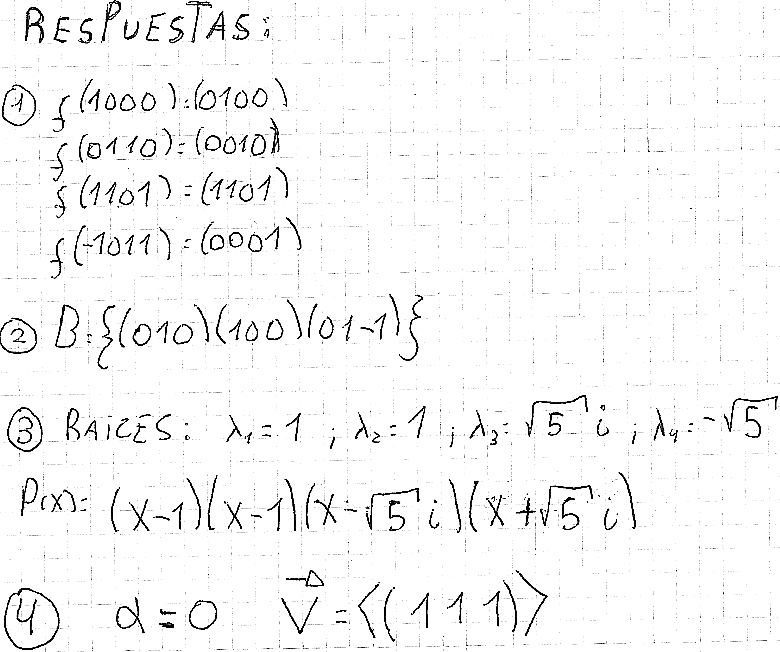 RESPUESTAS:
① f(1000)=(0100)
f(0110)=(0010)
f(1101)=(1101)
f(-1011)=(0001)
② B={(010)(100)(01-1)}
③ RAICES: λ₁=1 ; λ₂=1 ; λ₃=√5 i ; λ₄=-√5
P(x)= (x-1)(x-1)(x-√5 i)(x+√5 i)
④ α=0 V⃗=⟨(1 1 1)⟩